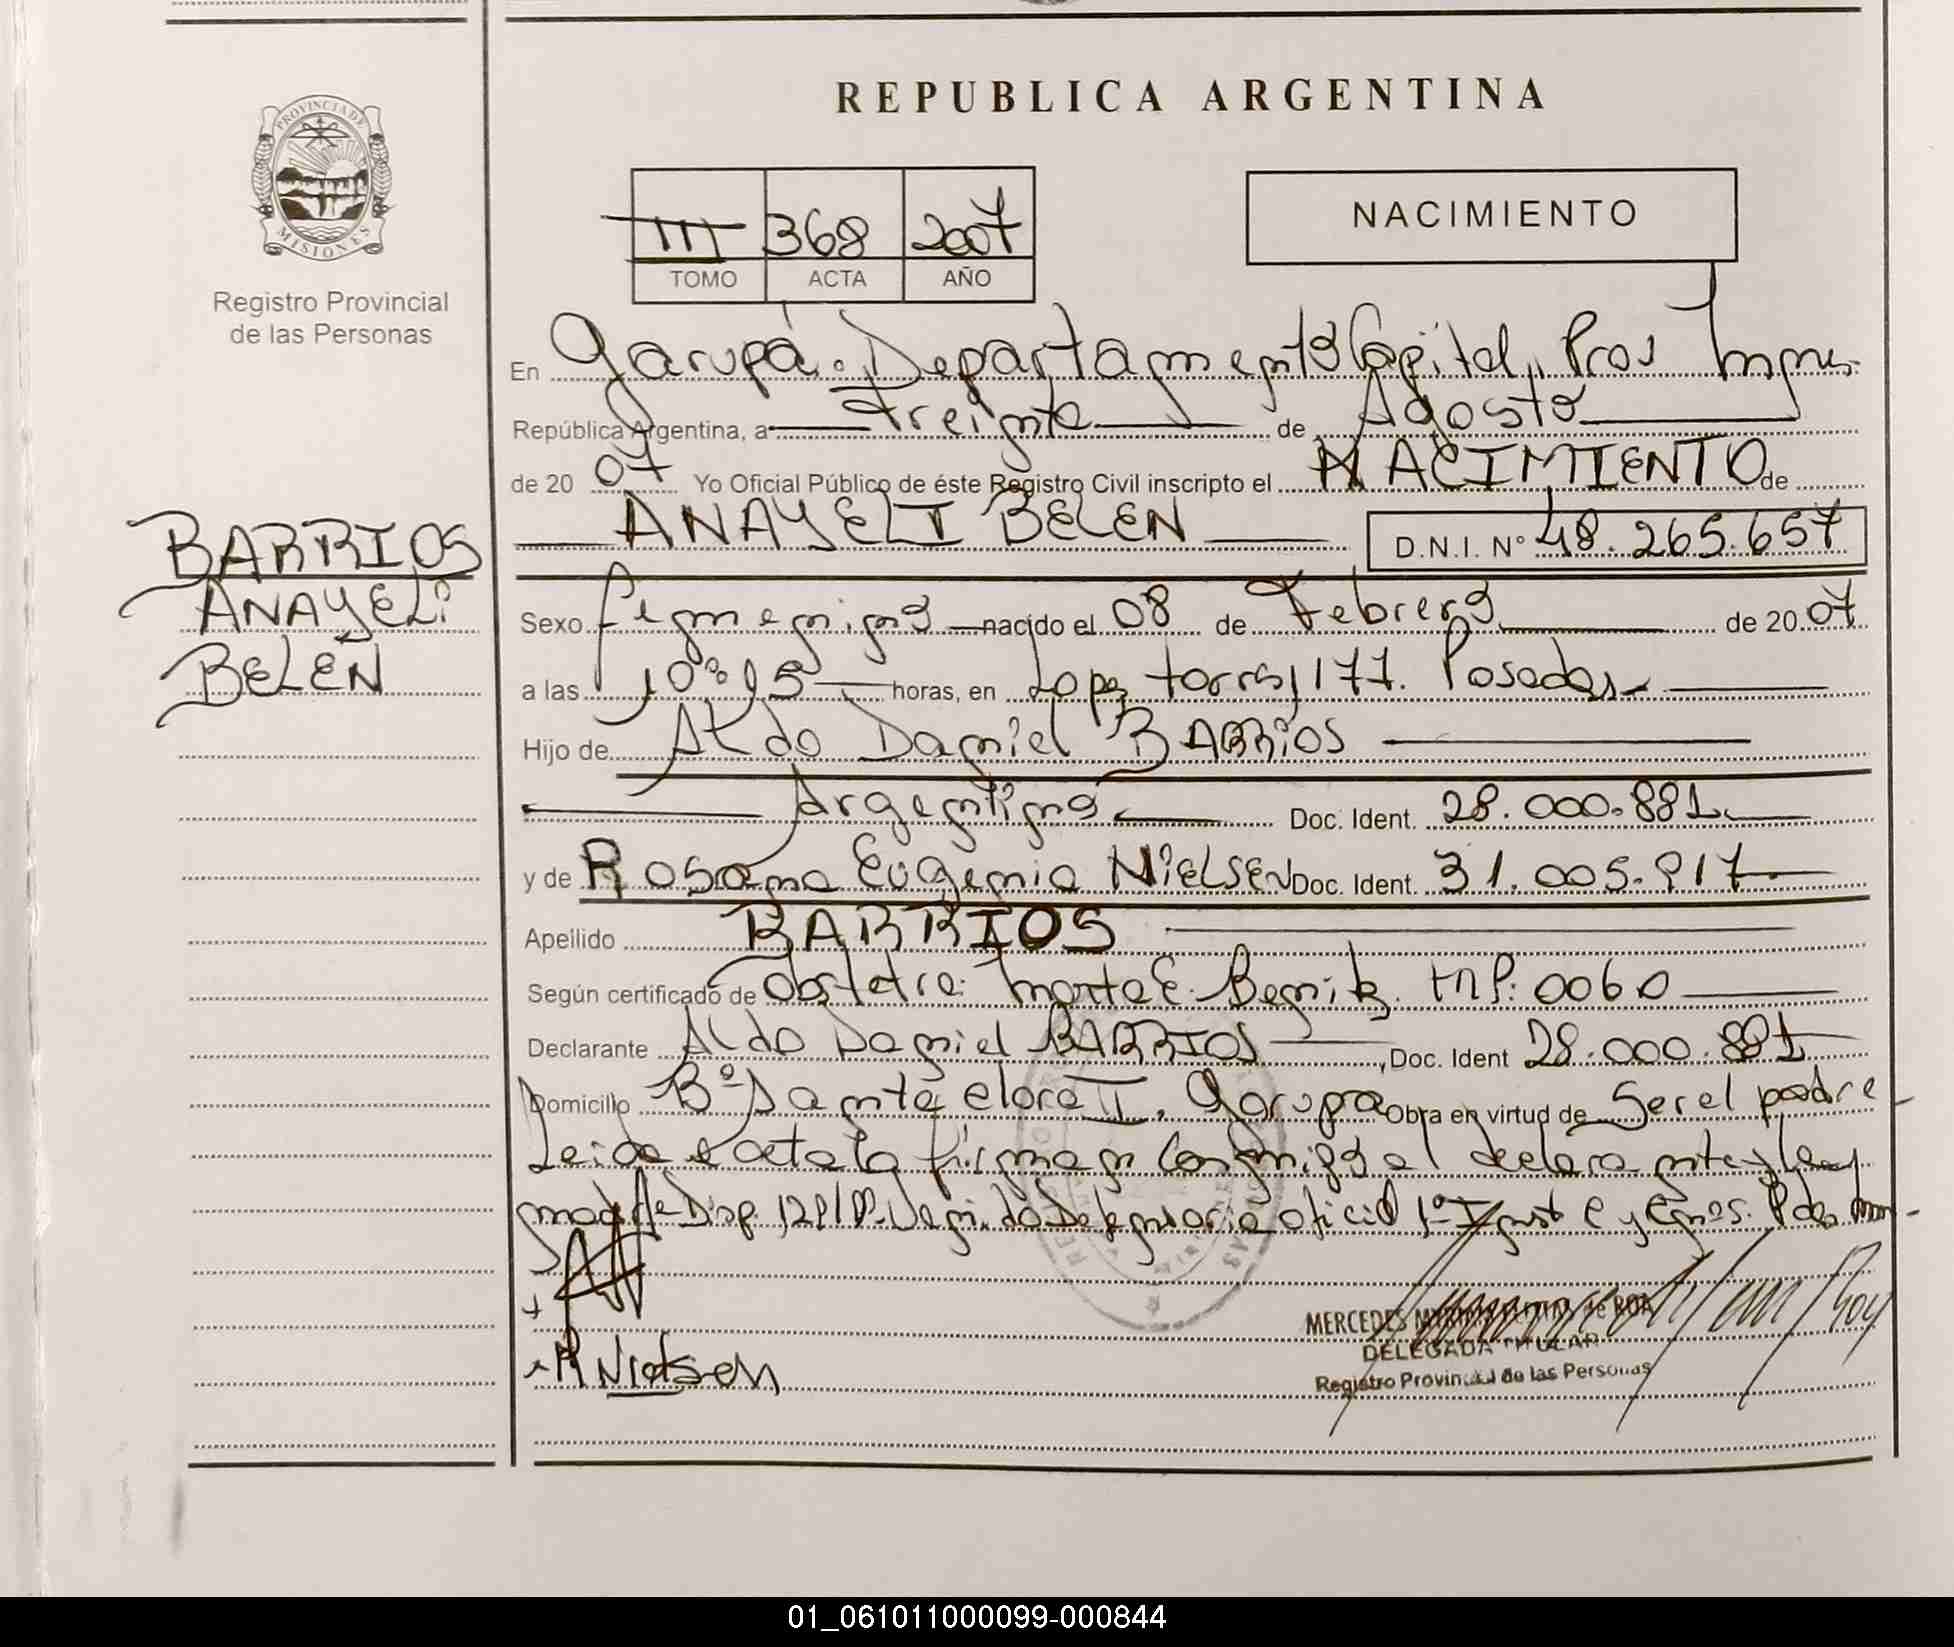 REPUBLICA ARGENTINA
PROVINCIA DE
MISIONES
Registro Provincial
de las Personas
III 368 2007
TOMO ACTA AÑO
NACIMIENTO
En Garupá. Departamento Capital, Pros
República Argentina, a Treinta de Agosto
de 2007 Yo Oficial Público de éste Registro Civil inscripto el NACIMIENTO de
ANAYELI BELEN D.N.I. Nº 48.265.657
BARRIOS
ANAYELI
BELEN
Sexo femenino nacido el 08 de Febrero de 2007
a las 10:05 horas, en Lopez torres 1177. Posadas
Hijo de Aldo Daniel BARRIOS
Argentino Doc. Ident. 28.000.881
y de Rosana Eugenia NIELSEN Doc. Ident. 31.005.917
Apellido BARRIOS
Según certificado de Obstetra: Marta E. Benitz. M.P. 0060
Declarante Aldo Daniel BARRIOS, Doc. Ident 28.000.881
Domicilio Bº Santa clara I, Garupa Obra en virtud de Ser el padre
Leida el acta la firman conmigo el declarante y la
madre Disp. Defensoria oficial 1º Inst
R Nielsen
MERCEDES de ROA
DELEGADA TITULAR
Registro Provincial de las Personas
01_061011000099-000844